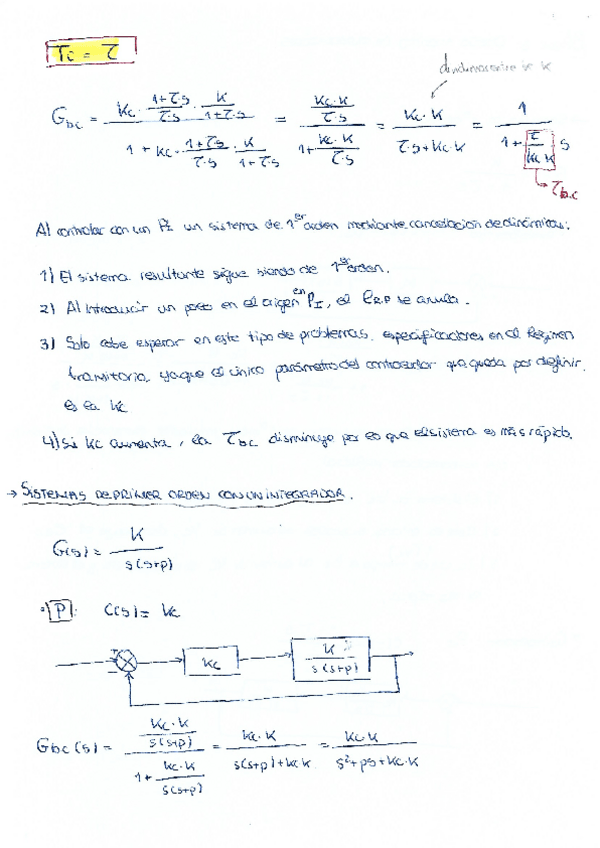 Ti = τ
G_bc = (Kc · (1+τ·s)/(τ·s) · K/(1+τ·s)) / (1 + Kc · (1+τ·s)/(τ·s) · K/(1+τ·s)) = (Kc·K/(τ·s)) / (1 + Kc·K/(τ·s)) = Kc·K / (τ·s + Kc·K) = 1 / (1 + (τ/(Kc·K)) s)
→ τb.c
Al controlar con un PI un sistema de 1er orden mediante cancelación de dinámicas:
1) El sistema resultante sigue siendo de 1er orden.
2) Al introducir un polo en el origen en PI, el eRP se anula.
3) Solo cabe esperar en este tipo de problemas, especificaciones en el Régimen
transitorio, ya que el único parámetro del controlador que queda por definir,
es la Kc
4) Si Kc aumenta, la τbc disminuye por lo que el sistema es más rápido.
→ SISTEMAS DE PRIMER ORDEN CON UN INTEGRADOR.
G(s) = K / (s(s+p))
• P: C(s) = Kc
+ - Kc K / (s(s+p))
Gbc(s) = (Kc·K/(s(s+p))) / (1 + Kc·K/(s(s+p))) = Kc·K / (s(s+p)+Kc·K) = Kc·K / (s²+ps+Kc·K)